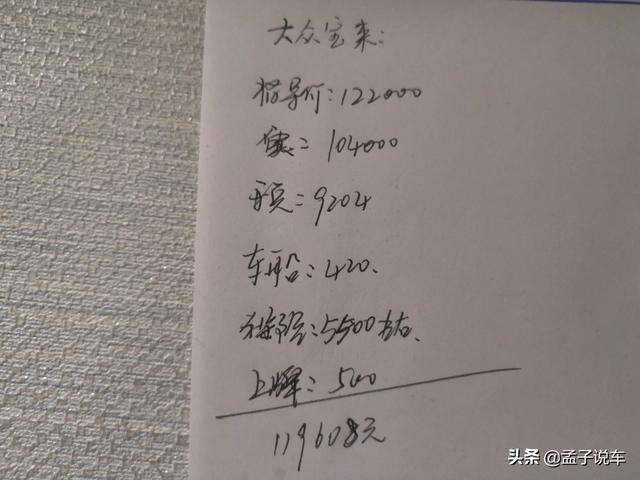 大众宝来:
指导价:122000
: 104000
: 9204
车船: 420.
: 5500左右.
上牌: 500
119608元
头条 @孟子说车